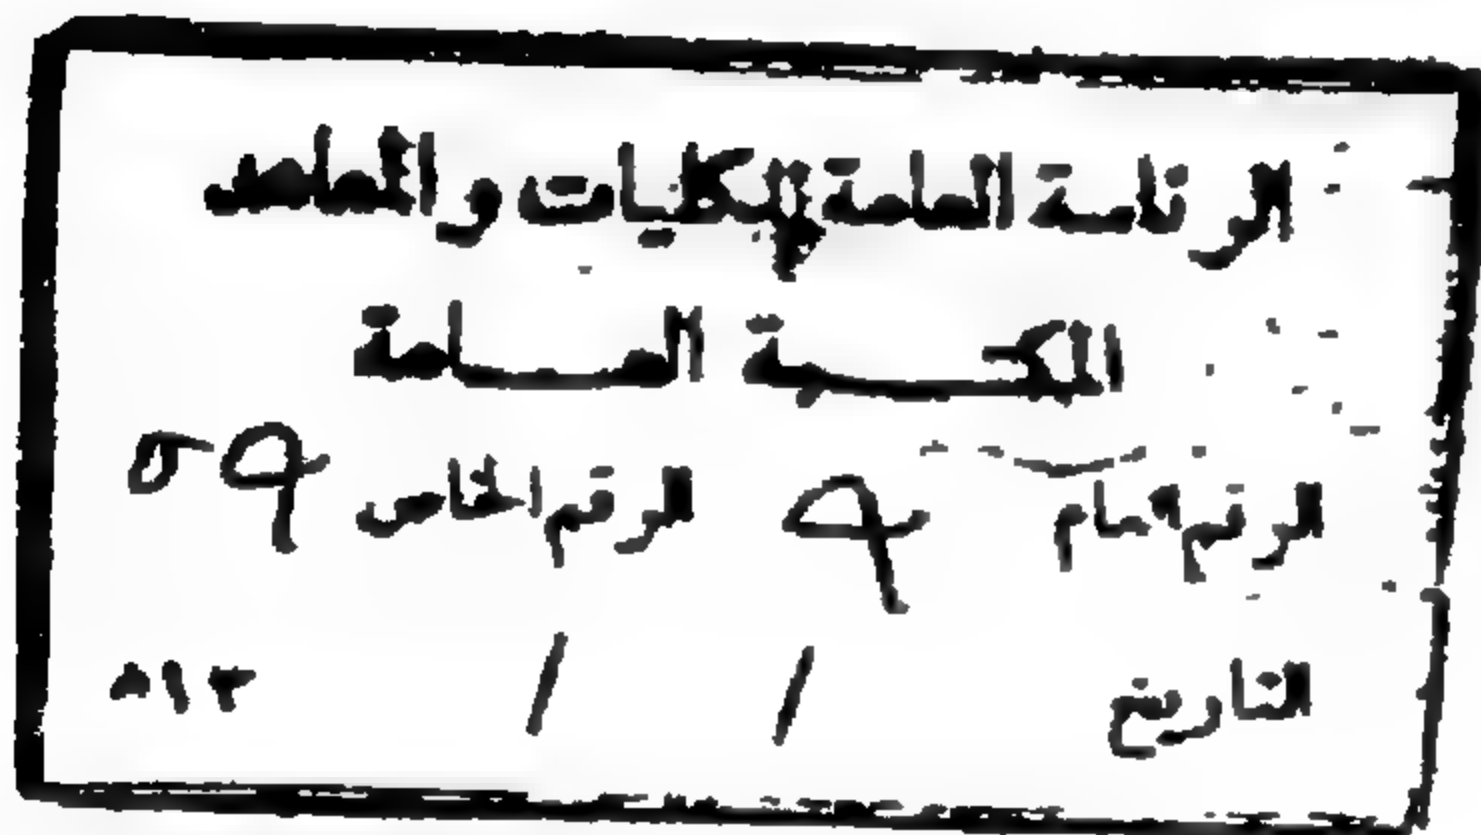 الرئاسة العامة للكليات والمعاهد
المكتبة العامة
الرقم العام ٩ الرقم الخاص ٥٩
التاريخ / / ١٣ هـ